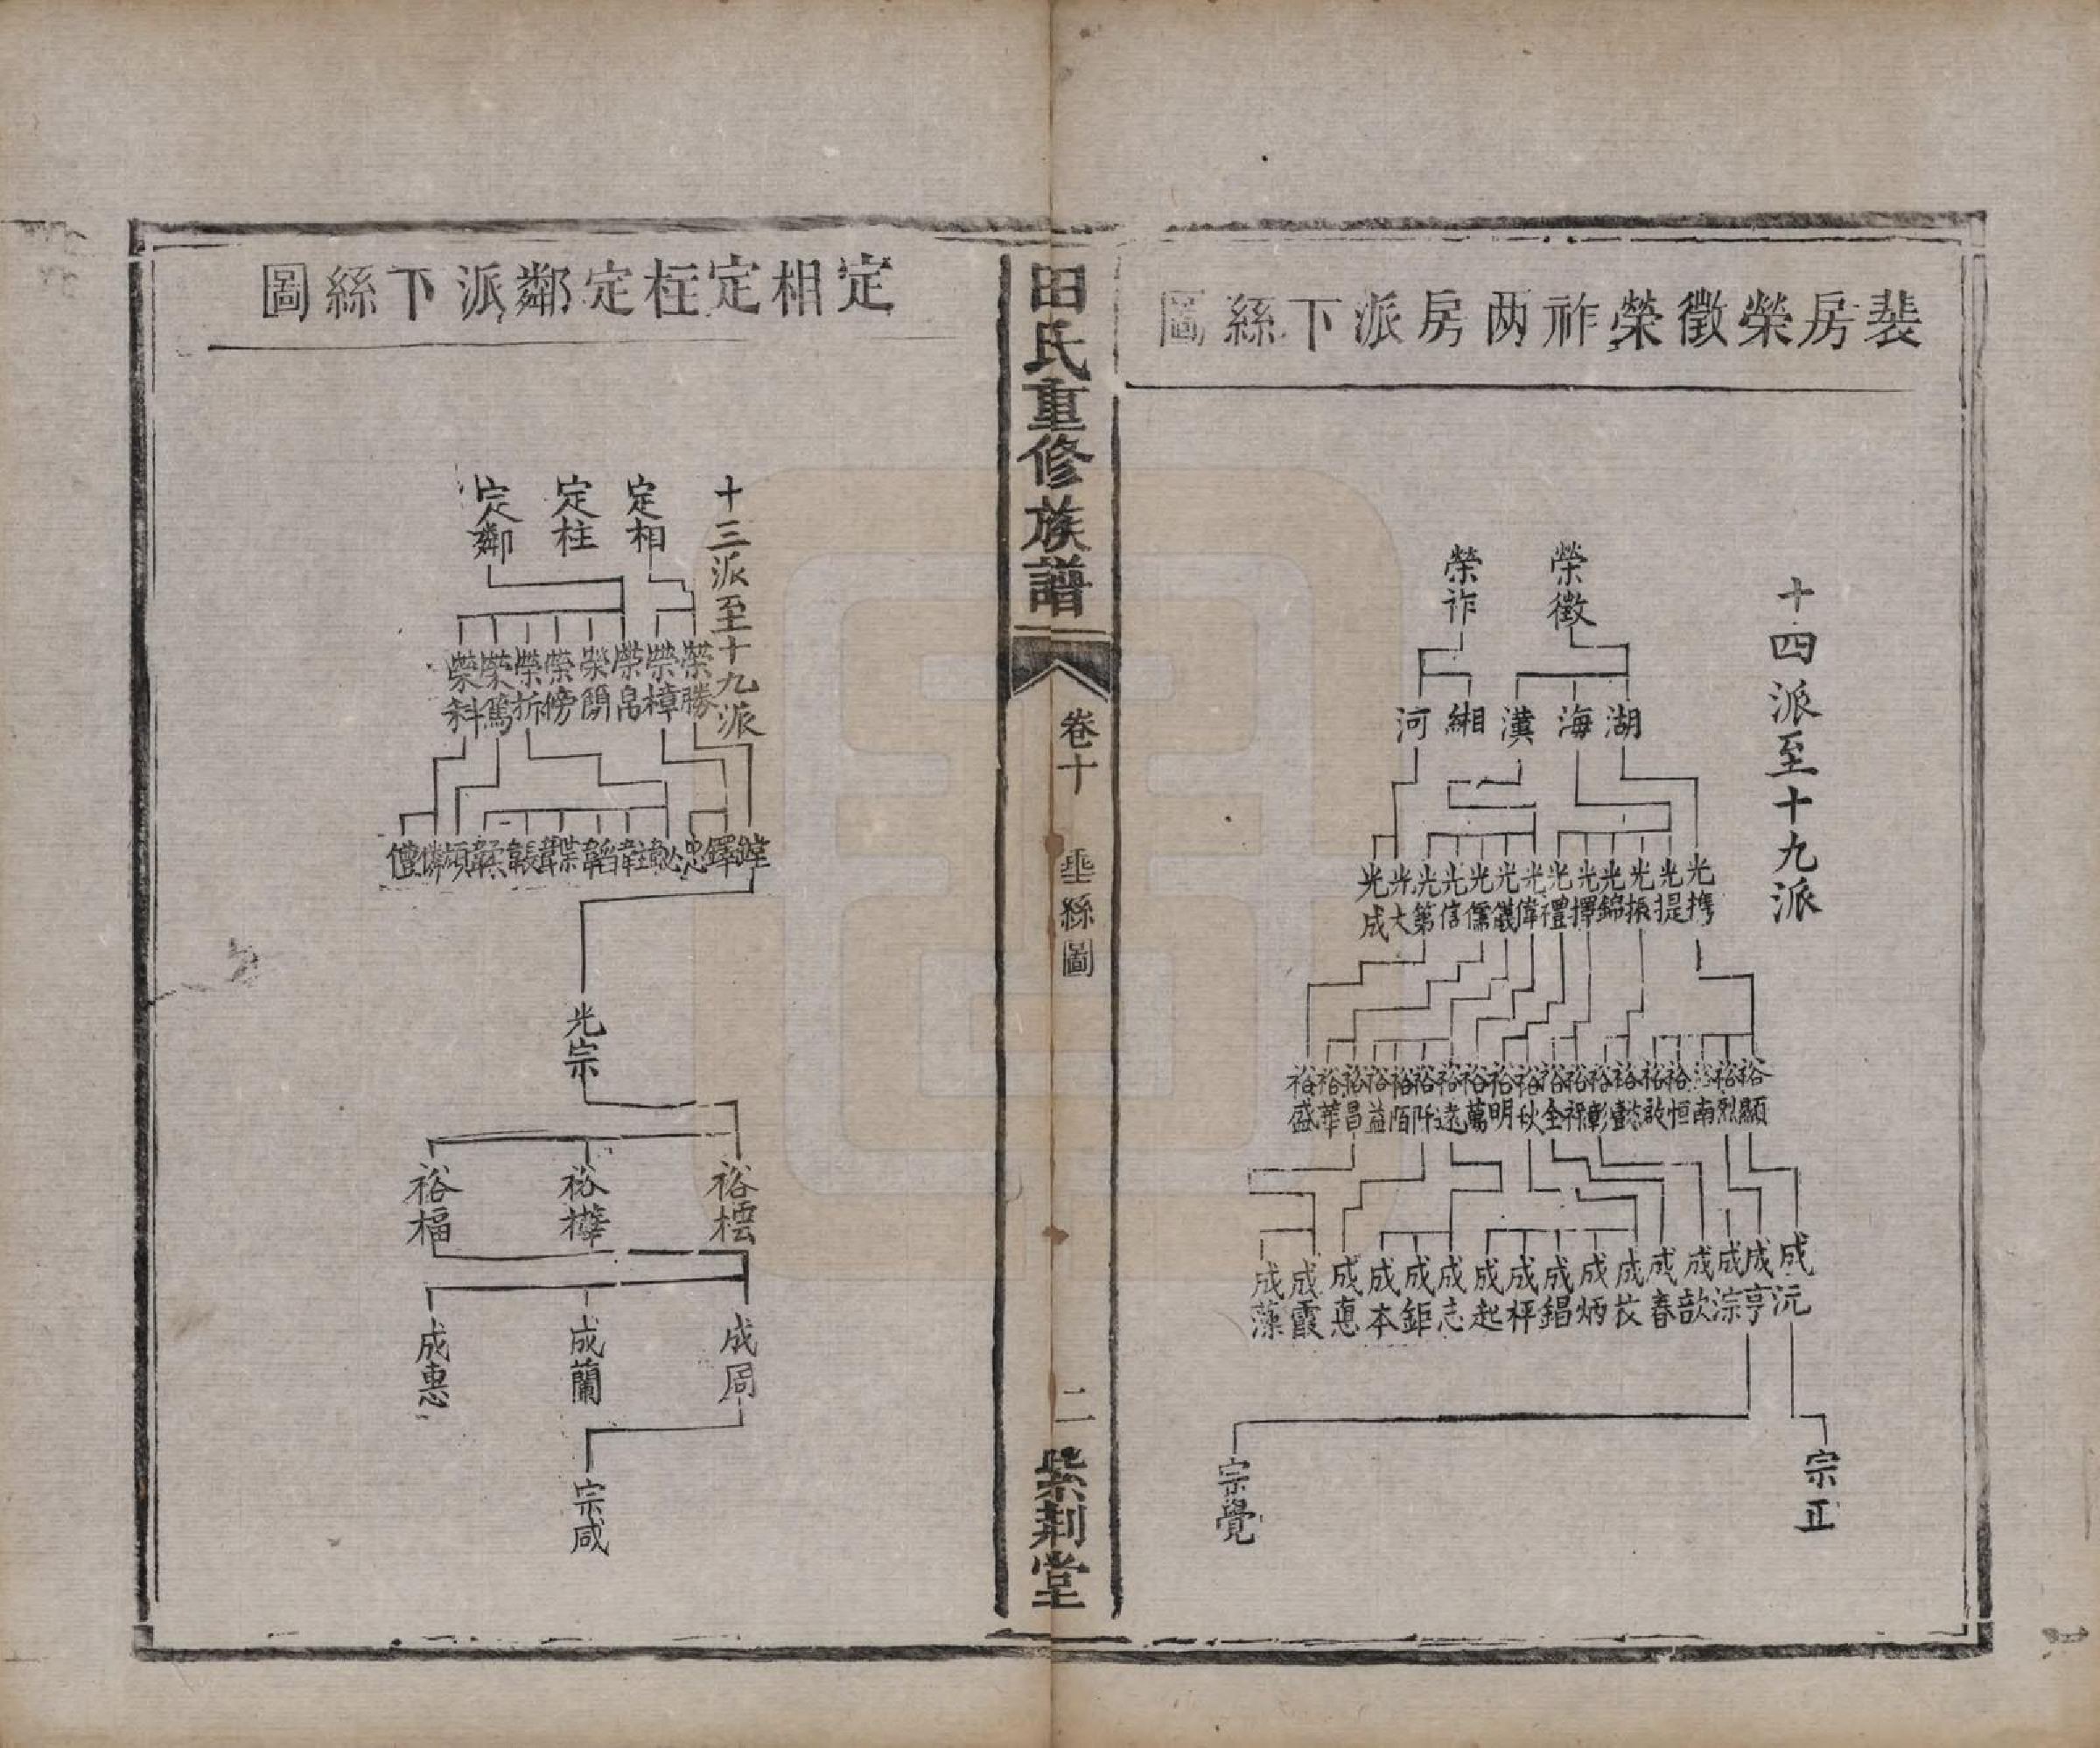 裴房榮徵榮祚两房派下絲圖
十四派至十九派
榮徵
榮祚
湖
海
漢
緗
河
光㩦
光提
光振
光錦
光擇
光禮
光偉
光儀
光儒
光信
光第
光大
光成
裕顯
裕烈
裕南
裕恒
裕啟
裕懿
裕彰
裕福
裕全
裕秋
裕明
裕萬
裕遠
裕阡
裕陌
裕益
裕昌
裕華
裕盛
成沅
成亨
成淙
成歆
成春
成炳
成錩
成枰
成起
成志
成鉅
成本
成息
成霞
成藻
宗正
宗覺
田氏重修族譜
卷十
垂絲圖
二
紫荊堂
定相定枉定鄰派下絲圖
十三派至十九派
定相
定柱
定鄰
榮勝
榮樟
榮帛
榮簡
榮傍
榮折
榮篤
榮科
光宗
裕橒
裕樺
裕楅
成周
成蘭
成惠
宗咸